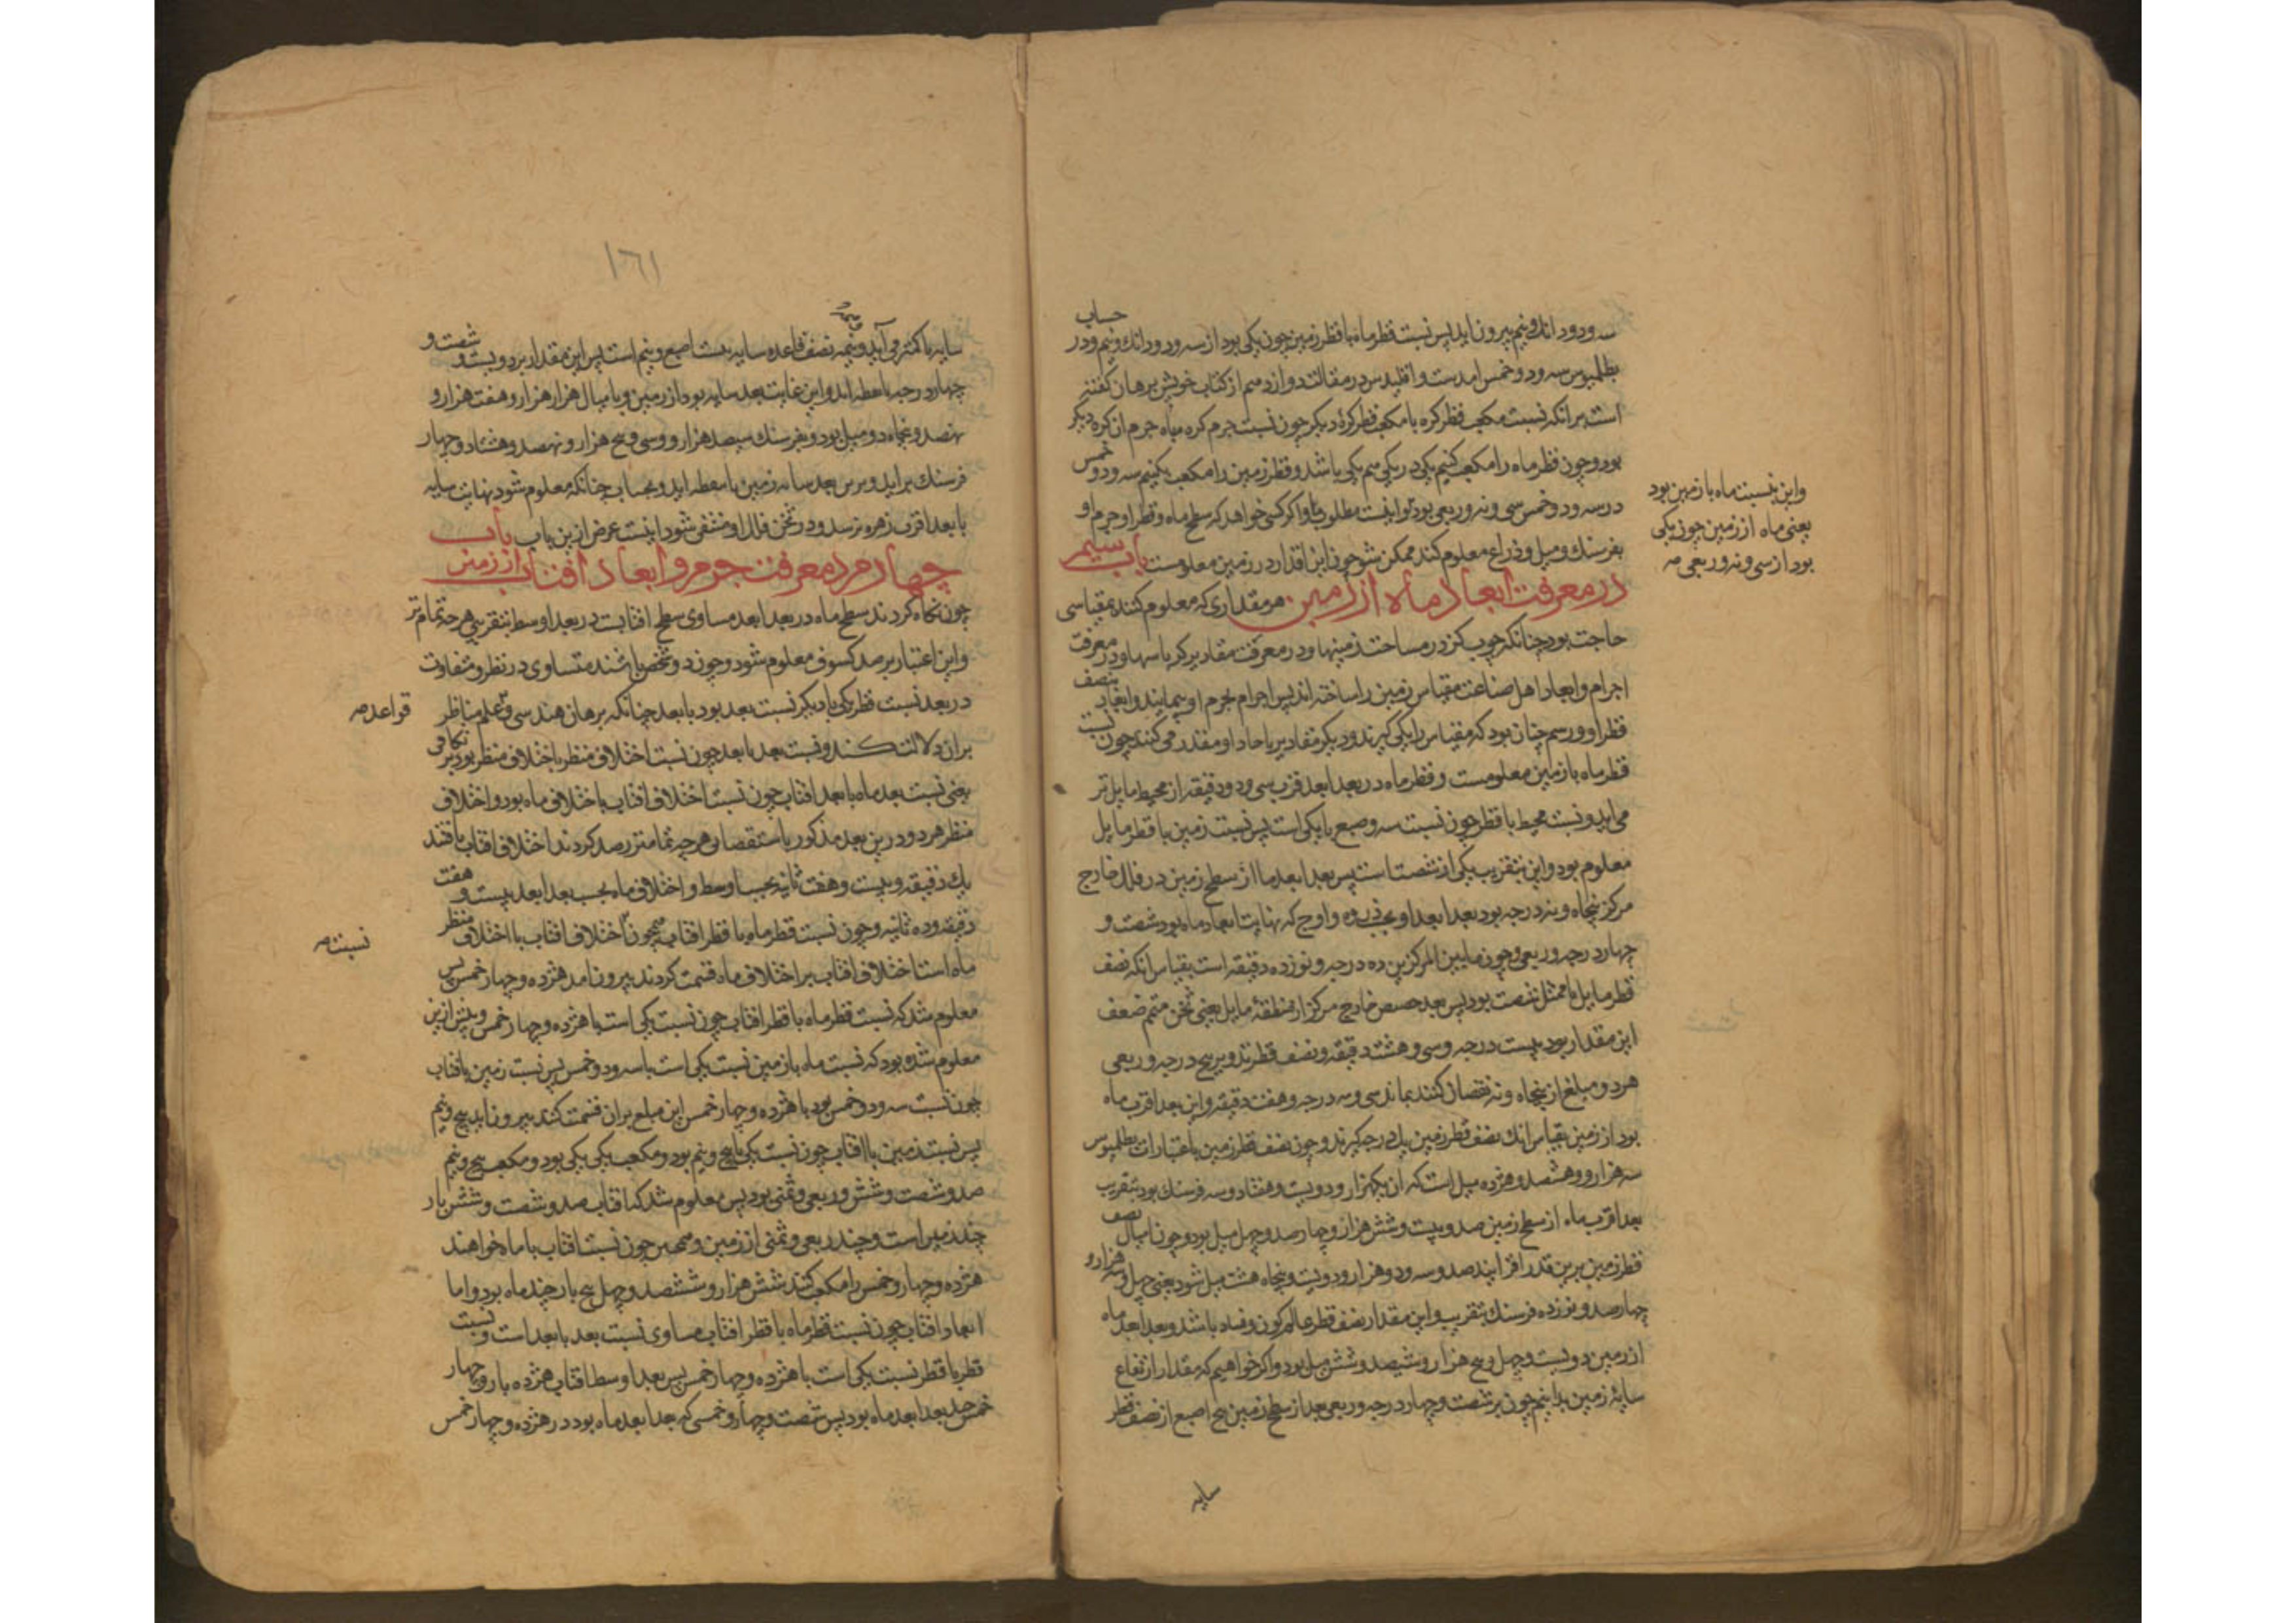 حساب
سه و دو دانك و نیم بیرون اید پس نسبت قطر ماه با قطر زمین چون یکی بود از سه و دو دانك و نیم و در
بطلمیوس سه و دو خمس امدست و اقلیدس در مقالت دوازدهم از کتاب خویش برهان کفته
است برانکه نسبت مکعب قطر کره با مکعب قطر کرهٔ دیکر چون نسبت جرم کره با جرم ان کره دیکر
بود و چون قطر ماه را مکعب کنیم یکی در یکی هم یکی باشد و قطر زمین را مکعب بکنیم سه و دو خمس
در سه و دو خمس سی و نه و ربعی بود و اینست مطلوب ما و اکر کسی خواهد که سطح ماه و قطر او و جرم او
بفرسنك و میل و ذراع معلوم کند ممکن شود چون این اقدار در زمین معلومست باب سیم
در معرفت ابعاد ماه از زمین هر مقداری که معلوم کنند بمقیاسی
حاجت بود چنانکه چوب کز در مساحت زمینها و در معرفت مقادیر کرباسها و در معرفت
اجرام و ابعاد اهل صناعت مقیاس زمین را ساخته اند پس اجرام بجرم او پیمایند و ابعاد بنصف
قطر او و رسم چنان بود که مقیاس را یکی کیرند و دیکر مقادیر باحاد او مقدر می کنند چون نسبت
قطر ماه با زمین معلومست و قطر ماه در بعد ابعد قرب سی و دو دقیقه از محیط مایل تر
می اید و نسبت محیط با قطر چون نسبت سه و سبع با یکی است پس نسبت زمین با قطر مایل
معلوم بود و این بتقریب یکی از شصت است پس بعد ابعد ما از سطح زمین در فلك خارج
مرکز پنجاه و نه درجه بود بعد ابعد او بحسب ذروه و اوج که نهایت ابعاد ماه بود شصت و
چهار درجه و ربعی و چون مابین المرکزین ده درجه و نوزده دقیقه است بقیاس انکه نصف
قطر مایل با ممثل شصت بود پس بعد حضیض خارج مرکز از منطقهٔ مایل یعنی ثخن متمم ضعف
این مقدار بود بیست درجه و سی و هشت دقیقه و نصف قطر تدویر پنج درجه و ربعی
هر دو مبلغ از پنجاه و نه نقصان کنند بماند سی و سه درجه و هفت دقیقه و این بعد اقرب ماه
بود از زمین بقیاس انك نصف قطر زمین یك درجه کیرند و چون نصف قطر زمین باعتبارات بطلمیوس
سه هزار و هشصد و هژده میل است که ان یکهزار و دویست و هفتاد و سه فرسنك بود بتقریب
بعد اقرب ماه از سطح زمین صد و بیست و شش هزار و چهار صد و چهل میل بود و چون امیال نصف
قطر زمین برین قدر افزایند صد و سه و دو هزار و دویست و پنجاه هشت میل شود یعنی چهل و سه هزار و
چهار صد و نوزده فرسنك بتقریب و این مقدار نصف قطر عالم کون و فساد باشد و بعد ابعد ماه
از زمین دویست و چهل و پنج هزار و شیصد و شش میل بود و اکر خواهیم که مقدار ارتفاع
سایهٔ زمین بدانیم چون بر شصت و چهار درجه و ربعی بعد از سطح زمین پنج اصبع از نصف قطر
سایه
و این نسبت ماه با زمین بود
یعنی ماه از زمین چون یکی
بود از سی و نه و ربعی صه
١٦١
سایه با کمتر می آید و نیمه نصف قاعده سایه بیست اصبع و نیم است پس این مقدار بر دویست و شصت و
چهار درجه باعطه اند و این غایت بعد سایه بود از زمین و بامیال هزار هزار و هفت هزار و
نهصد و پنجاه دو میل بود و بفرسنك سیصد هزار و سی و پنج هزار و نهصد و هشتاد و چهار
فرسنك براید و برین بعد سایه زمین باسطه اید و بحساب چنانکه معلوم شود نهایت سایه
با بعد اقرب زهره نرسد و در ثخن فلك او منتفی شود اینست غرض ازین باب باب
چهارم در معرفت جرم و ابعاد افتاب از زمین
چون نکاه کردند سطح ماه در بعد ابعد مساوی سطح افتابست در بعد اوسط بتقریبی هر چه تمام تر
و این اعتبار برصد کسوف معلوم شود و چون دو شخص باشند متساوی در نظر و متفاوت
در بعد نسبت قطر یکی با دیکر نسبت بعد بود با بعد چنانکه برهان هندسی و علم مناظر
بران دلالت کند و نسبت بعد با بعد چون نسبت اختلاف منظر باختلاف منظر بود بر تکافی
یعنی نسبت بعد ماه با بعد افتاب چون نسبت اختلاف افتاب باختلاف ماه بود و اختلاف
منظر هر دو درین بعد مذکور باستقصای هر چه تمامتر رصد کردند اختلاف افتاب یافتند
یك دقیقه و بیست و هفت ثانیه بحسب اوسط و اختلاف ماه بحسب بعد ابعد بیست و هفت
دقیقه و ده ثانیه و چون نسبت قطر ماه با قطر افتاب همچون اختلاف افتاب با اختلاف منظر
ماه است اختلاف افتاب بر اختلاف ماه قسمت کردند بیرون امد هژده و چهار خمس پس
معلوم شد که نسبت قطر ماه با قطر افتاب چون نسبت یکی است با هژده و چهار خمس و پیش ازین
معلوم شده بود که نسبت ماه با زمین نسبت یکی است با سه و دو خمس پس نسبت زمین با افتاب
چون نسبت سه و دو خمس بود با هژده و چهار خمس این مبلغ بران قسمت کنند بیرون اید پنج و نیم
پس نسبت زمین با افتاب چون نسبت یکی با پنج و نیم بود و مکعب یکی یکی بود و مکعب پنج و نیم
صد و شصت و شش و ربعی و ثمنی بود پس معلوم شد که افتاب صد و شصت و شش بار
چند زمین است و چند ربعی و ثمنی از زمین و همچنین چون نسبت افتاب با ماه خواهند
هژده و چهار و خمس را مکعب کنند شش هزار و ششصد و چهل پنج بار چند ماه بود و اما
ابعاد افتاب چون نسبت قطر ماه با قطر افتاب مساوی نسبت بعد با بعد است و نسبت
قطر با قطر نسبت یکی است با هژده و چهار خمس پس بعد اوسط افتاب هژده بار و چهار
خمس چند بعد ابعد ماه بود پس شصت و چهار و خمسی که بعد ابعد ماه بود در هژده و چهار خمس
قواعد صه
نسبت صه